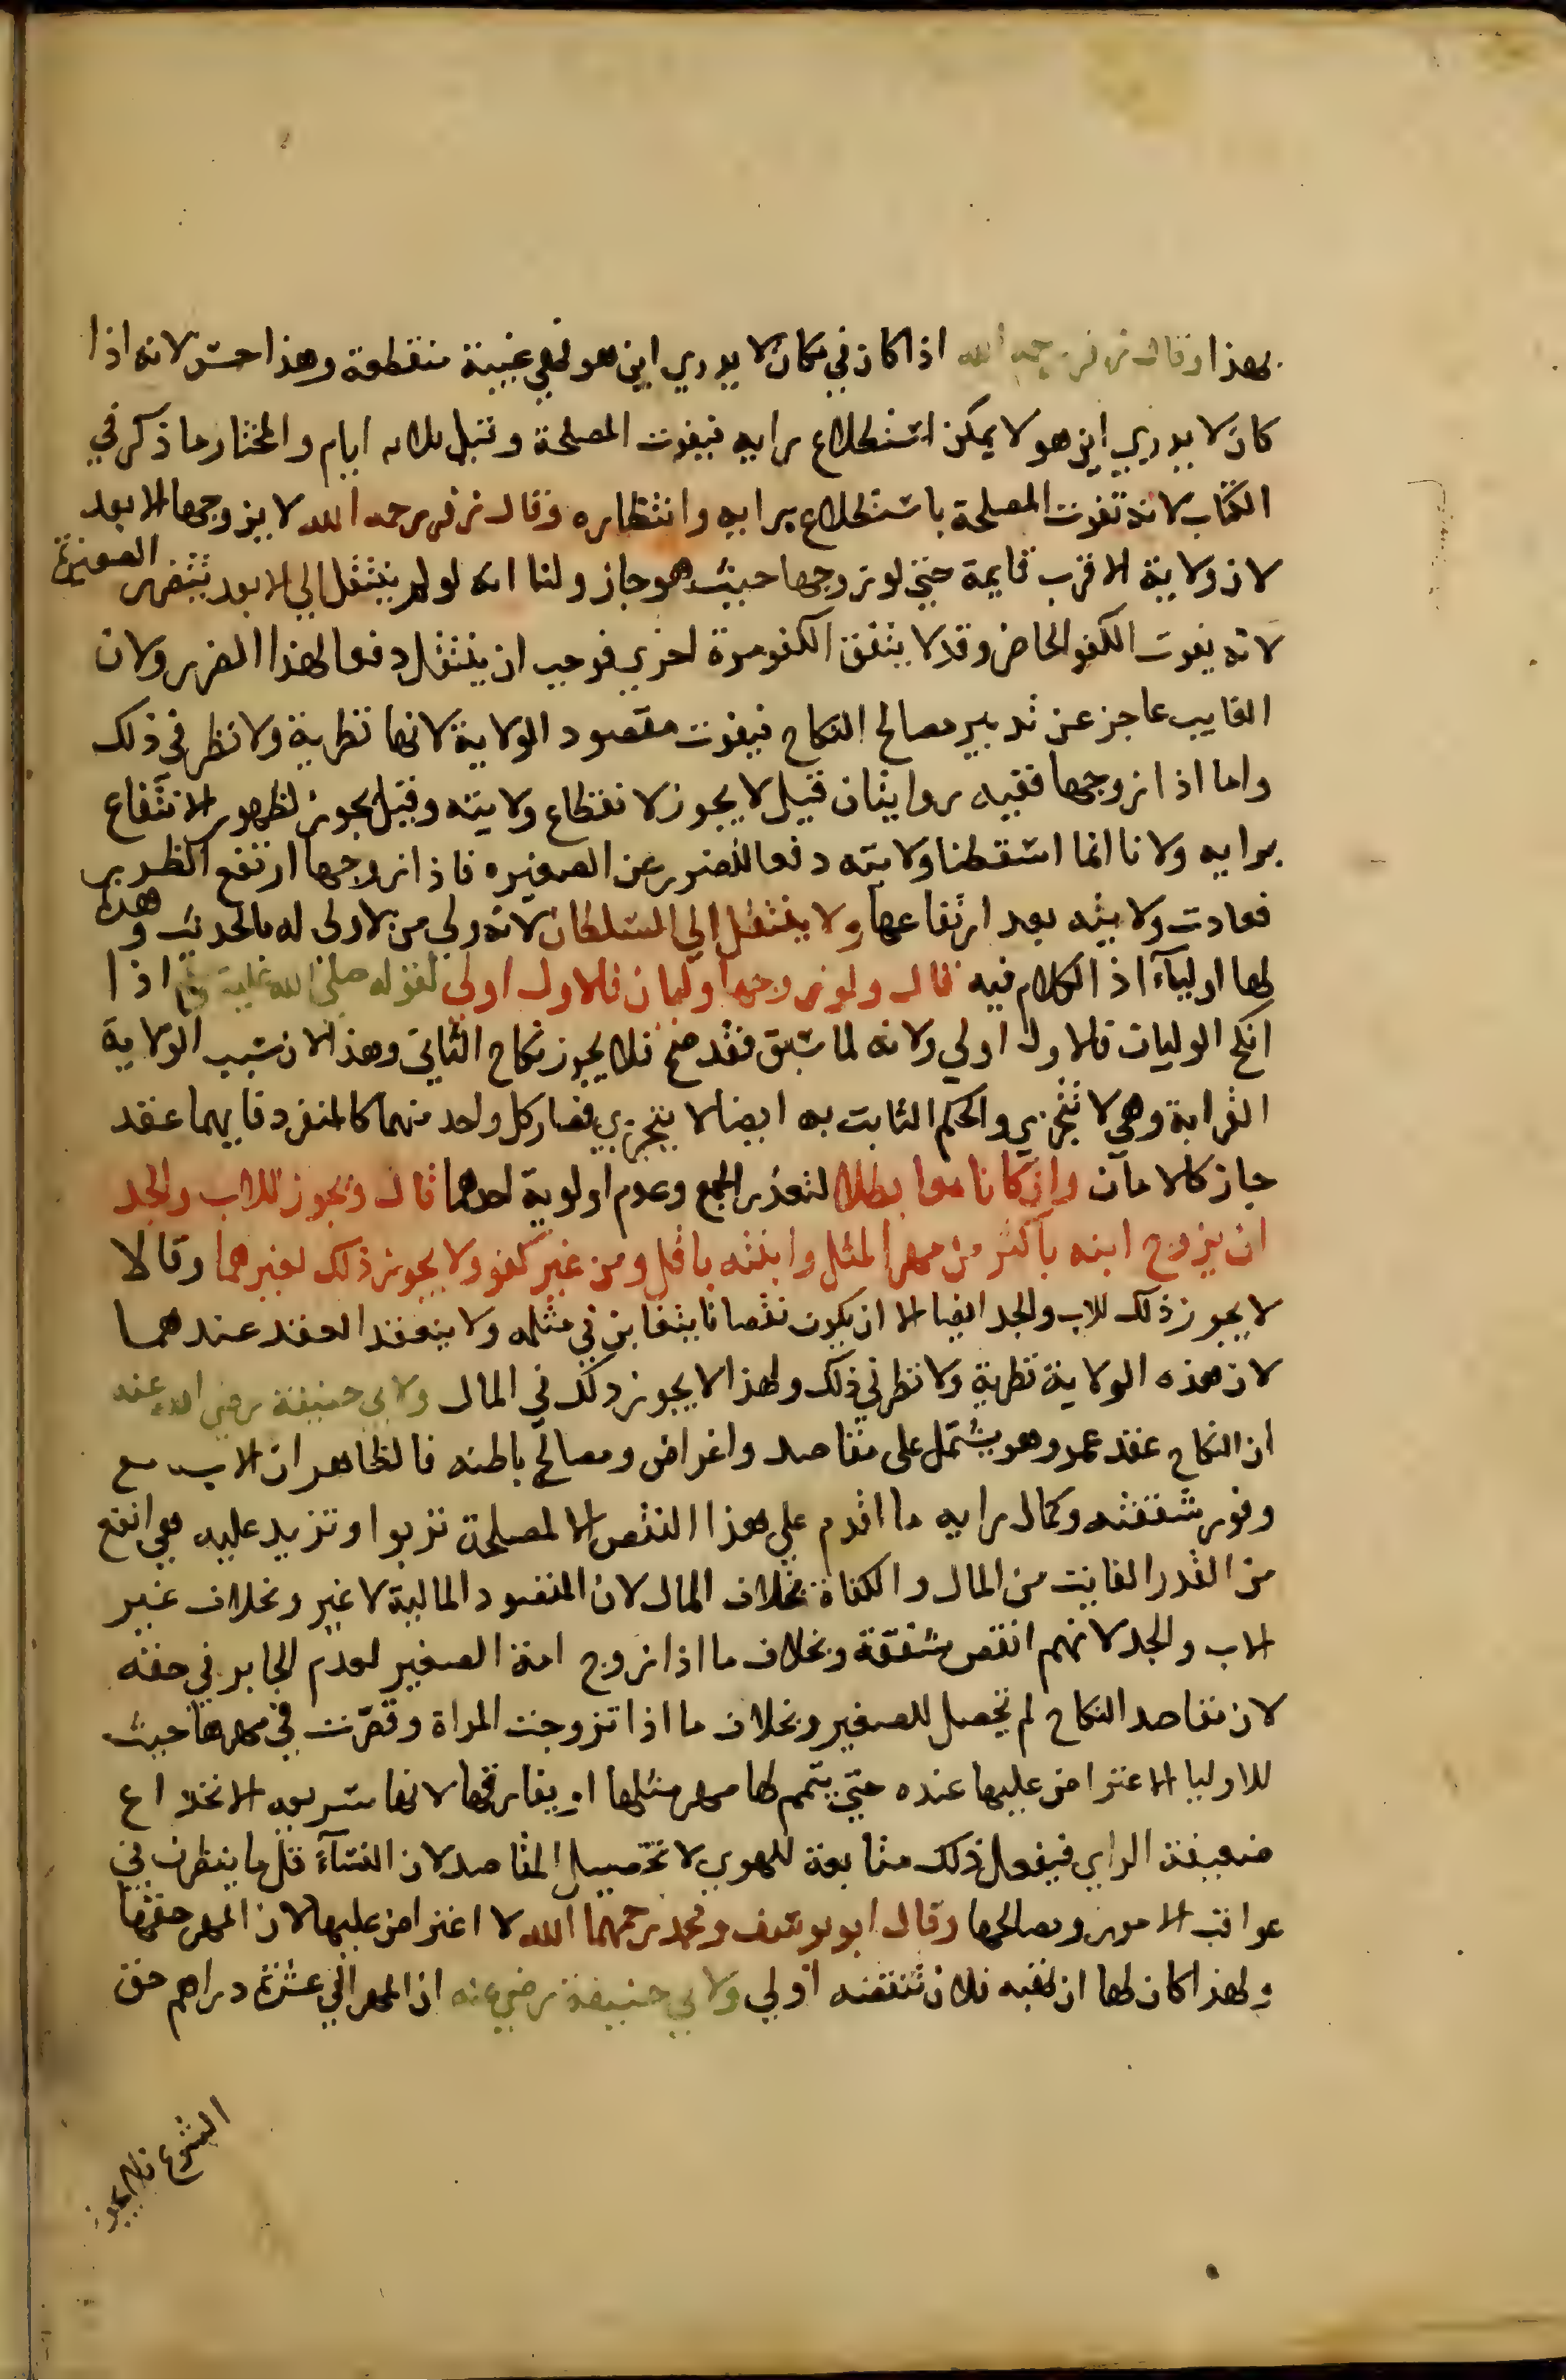 بهذا وقال زفر رحمه الله اذا كان في مكان لا يدري اين هو فهي غيبة منقطعة وهذا حسن لانه اذا
كان لا يدري اين هو لا يمكن استطلاع رايه فيفوت المصلحة وقيل ثلاثة ايام والمختار ما ذكر في
الكتاب لانه تفوت المصلحة باستطلاع رايه وانتظاره وقال زفر رحمه الله لا يزوجها الابعد
لان ولاية الاقرب قايمة حتى لو زوجها حيث هو جاز ولنا انه لو لم ينتقل الي الابعد تتضرر الصغيرة
لانه يفوت الكفو الحاضر وقد لا يتفق الكفو مرة اخري فوجب ان ينتقل دفعا لهذا الضرر ولان
الغايب عاجز عن تدبير مصالح النكاح فيفوت مقصود الولاية لانها نظرية ولا نظر في ذلك
واما اذا زوجها ففيه روايتان قيل لا يجوز لانقطاع ولايته وقيل يجوز لظهور الانتفاع
برايه ولانا انما اسقطنا ولايته دفعا للضرر عن الصغيره فاذا زوجها ارتفع الضرر
فعادت ولايته بعد ارتفاعها ولا ينتقل الي السلطان لانه ولي من لا ولى له بالحديث وهذه
لها اوليآء اذ الكلام فيه قال ولو زوجها وليان فالاول اولي لقوله صلى الله عليه وسلم اذا
انكح الوليان فالاول اولي ولانه لما سبق فقد صح فلا يجوز نكاح الثاني وهذا لان سبب الولاية
القرابة وهي لا تتجزي والحكم الثابت به ايضا لا يتجزي فصار كل واحد منهما كالمنفرد فايهما عقد
جاز كالامان وان كانا معا بطلا لتعذر الجمع وعدم اولوية احدهما قال ويجوز للاب والجد
ان يزوج ابنه باكثر من مهر المثل وابنته باقل ومن غير كفو ولا يجوز ذلك لغيرهما وقالا
لا يجوز ذلك للاب والجد ايضا الا ان يكون نقصا نا يتغابن في مثله ولا ينعقد العقد عندهما
لان هذه الولاية نظرية ولا نظر في ذلك ولهذا لا يجوز ذلك في المال ولابي حنيفة رضي الله عنه
ان النكاح عقد عمر وهو يشتمل على مقاصد واغراض ومصالح باطنه فالظاهر ان الاب مع
وفور شفقته وكمال رايه ما اقدم علي هذا النقص الا لمصلحة تربوا وتزيد عليه هي انفع
من القدر الفايت من المال والكفاة بخلاف المال لان المقصود المالية لا غير وبخلاف غير
الاب والجد لانهم انقص شفقة وبخلاف ما اذا زوج امة الصغير لعدم الجابر في حقه
لان مقاصد النكاح لم تحصل للصغير وبخلاف ما اذا تزوجت المراة وقصرت في مهرها حيث
للاوليا الاعتراض عليها عنده حتي يتمم لها مهر مثلها او يفارقها لانها سريعه الانخداع
ضعيفة الراي فيفعل ذلك متابعة للهوي لا تحصيل المقاصد لان النسآء قل ما ينظرن في
عواقب الامور ومصالحها وقال ابو يوسف ومحمد رحمهما الله لا اعتراض عليها لان المهر حقها
ولهذا كان لها ان تهبه فلان تنقصه اولي ولابي حنيفة رضي عنه ان المهر الي عشرة دراهم حق
الشرع فلا يجوز